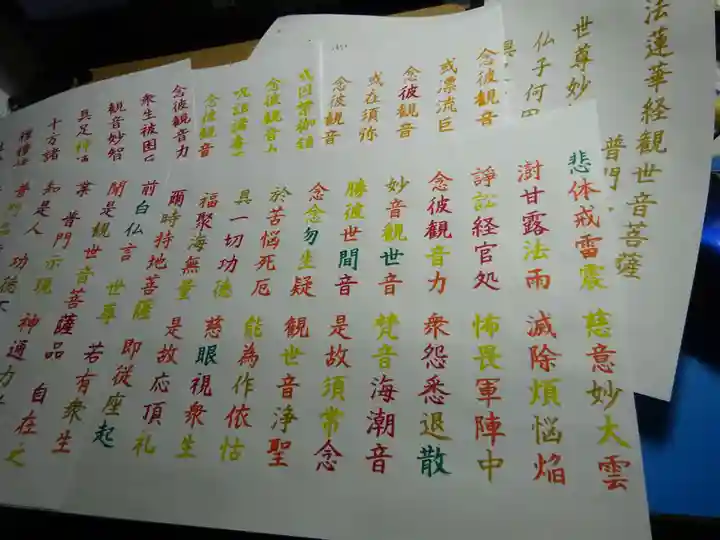 法蓮華経観世音菩薩
普門
世尊妙
仏子何
念彼観音
或漂流巨
念彼観音
或在須弥
念彼観音
念彼観音
念彼観音
念彼観音力
衆生被困
観音妙智
具足神
十方諸
悲体戒雷震 慈意妙大雲
澍甘露法雨 滅除煩悩焔
諍訟経官処 怖畏軍陣中
念彼観音力 衆怨悉退散
妙音観世音 梵音海潮音
勝彼世間音 是故須常念
念念勿生疑 観世音浄聖
於苦悩死厄 能為作依怙
具一切功徳 慈眼視衆生
福聚海無量 是故応頂礼
爾時持地菩薩 即従座起
前白仏言 世尊 若有衆生
聞是観世音菩薩品 自在之
業 普門示現 神通力
知是人 功徳